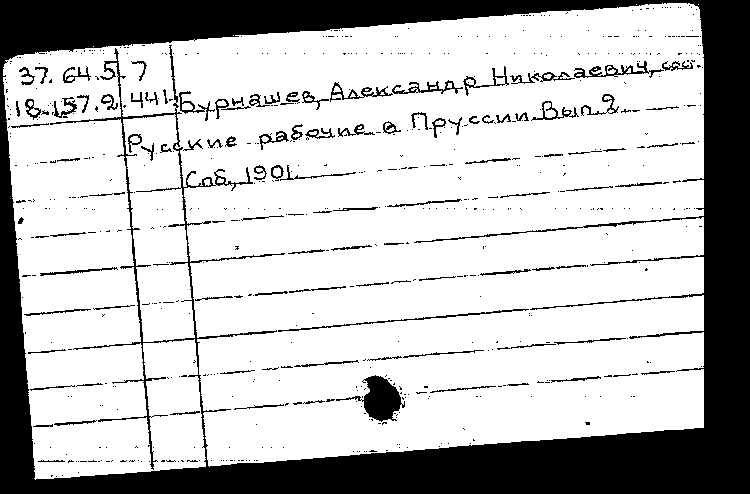 37.64.5.7
18.157.2.441 Бурнашев, Александр Николаевич, сост.
Русские рабочие в Пруссии. Вып. 2.
Спб., 1901.